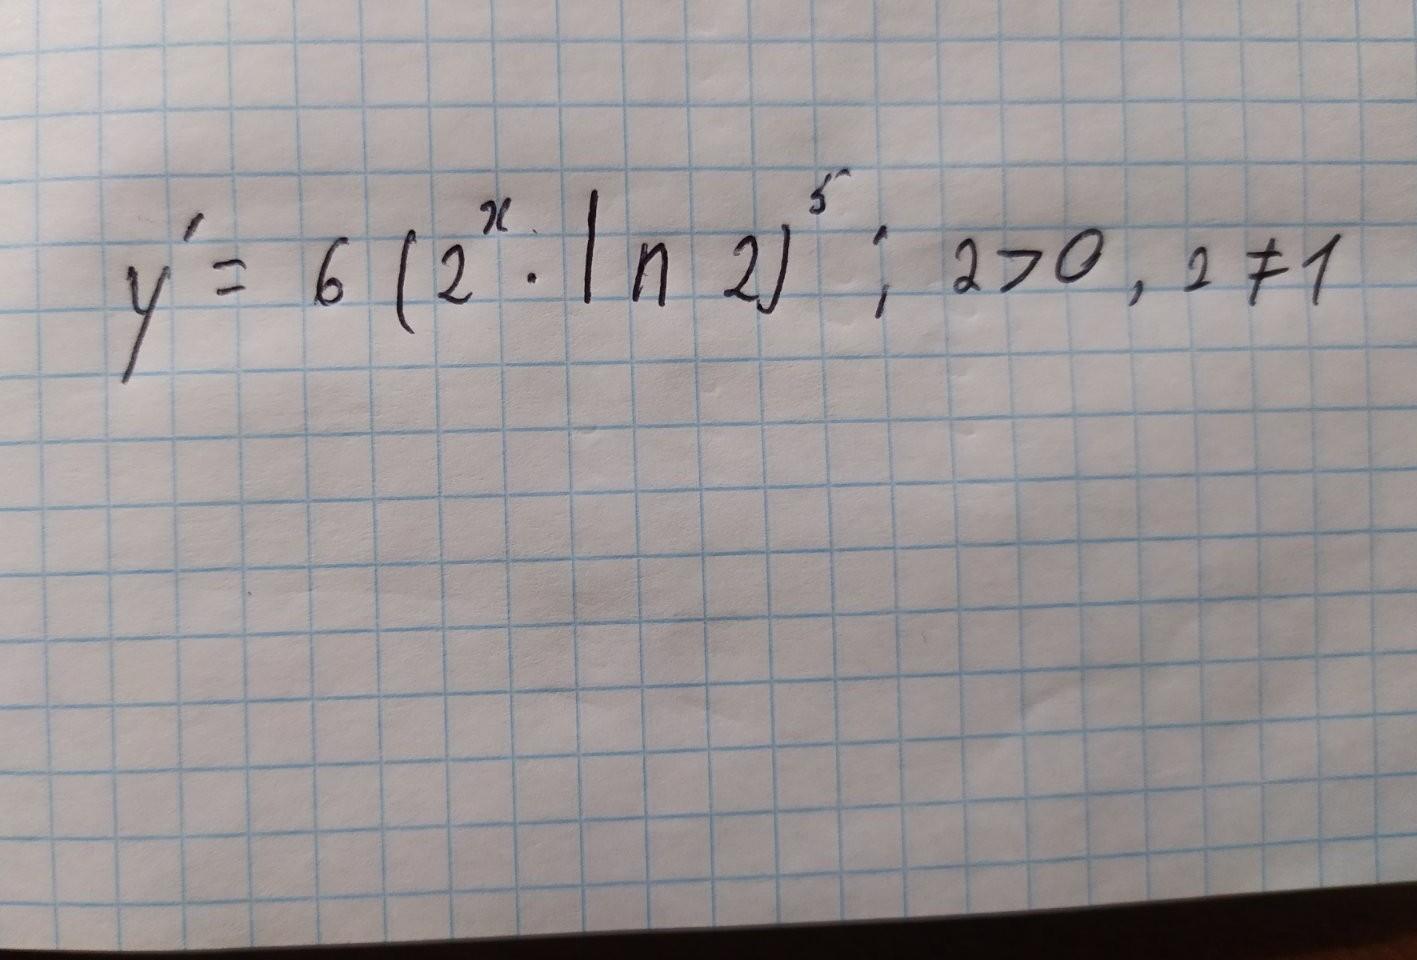 y' = 6 (2ˣ · ln 2)⁵ ; 2>0, 2 ≠ 1